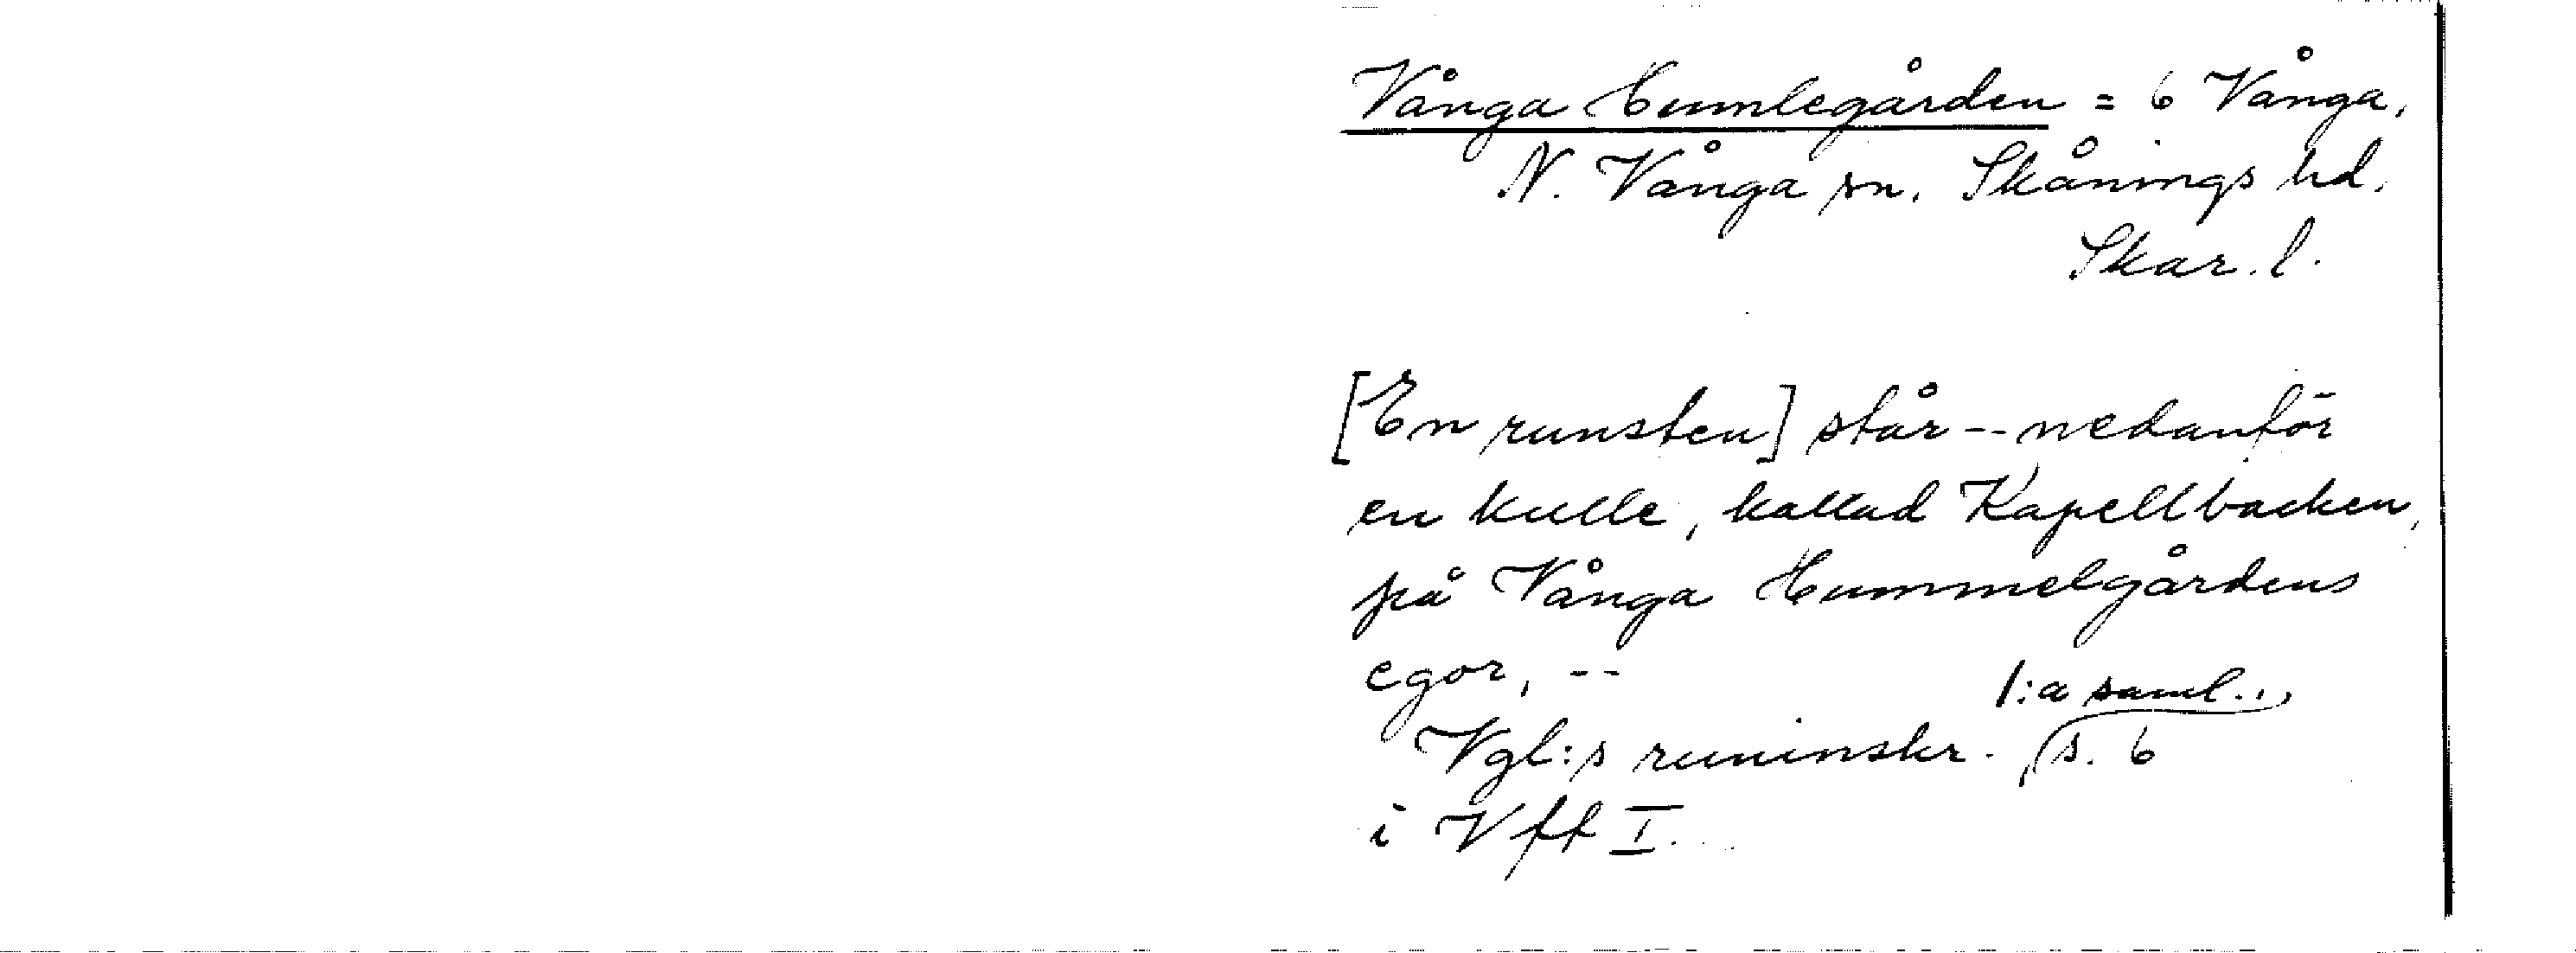 Vånga Humlegården = 6 Vånga,
N. Vånga sn. Skånings hd.
Skar. l.
[En runsten] står -- nedanför
en kulle, kallad Kapellbacken,
på Vånga Hummelgårdens
egor, --
1:a saml.,
Vgl:s runinskr. s. 6
i Vff I.